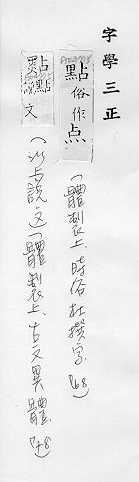 字學三正
點俗作点
「體製上、時俗杜撰字」(68)
點說文
(从占說文)「體製上、古文異體」(48)